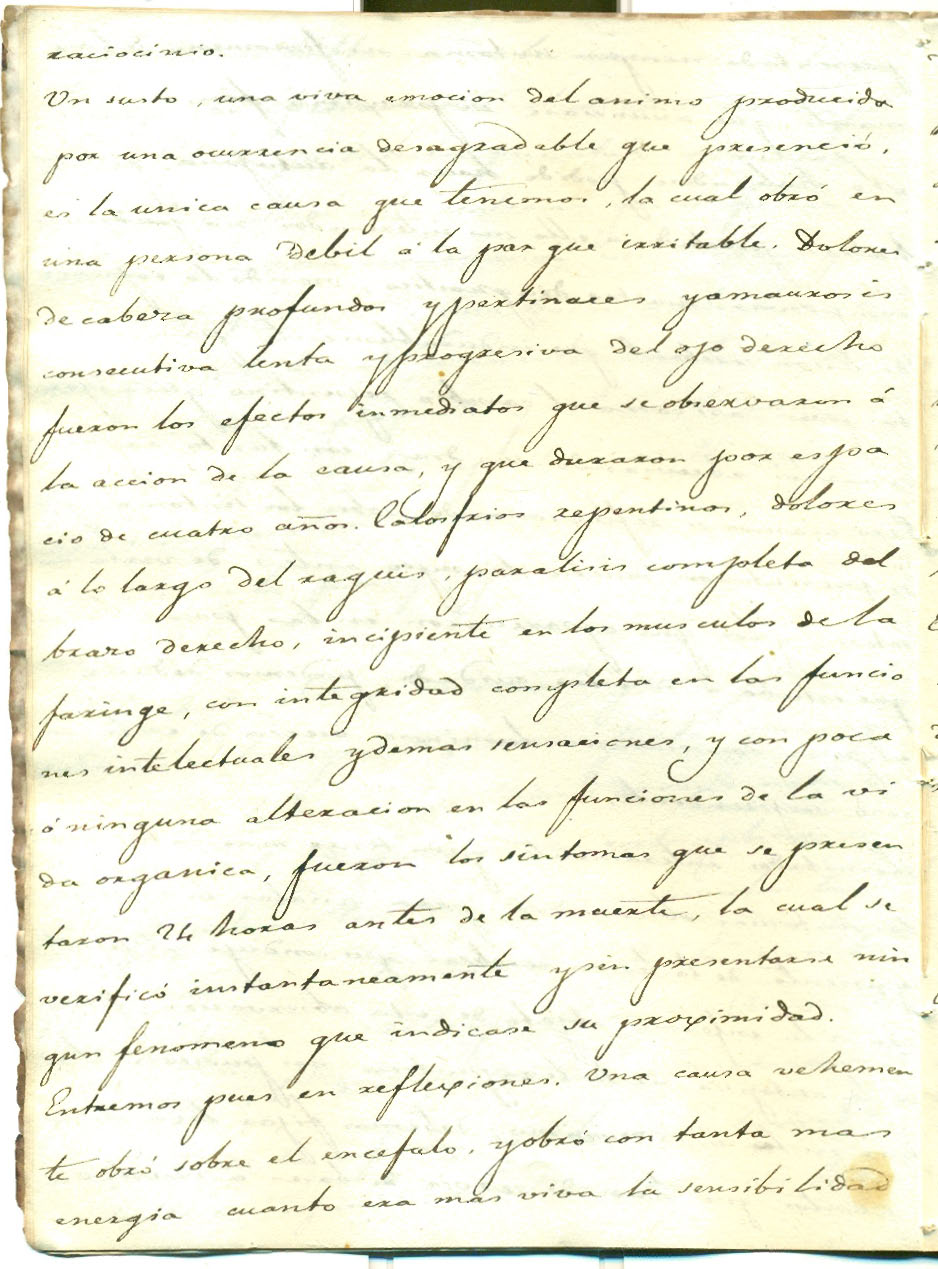 raciocinio.
Un susto, una viva emocion del animo producida
por una ocurrencia desagradable que presenció,
es la unica causa que tenemos, la cual obró en
una persona debil á la par que irritable. Dolores
de cabeza profundos y pertinaces y amaurosis
consecutiva lenta y progresiva del ojo derecho
fueron los efectos inmediatos que se observaron á
la accion de la causa, y que duraron por espa
cio de cuatro años. Calosfrios repentinos, dolores
á lo largo del raquis, paralisis completa del
brazo derecho, incipiente en los musculos de la
faringe, con integridad completa en las funcio
nes intelectuales y demas sensaciones, y con poca
ó ninguna alteracion en las funciones de la vi
da organica, fueron los sintomas que se presen
taron 24 horas antes de la muerte, la cual se
verificó instantaneamente y sin presentarse nin
gun fenomeno que indicase su proximidad.
Entremos pues en reflexiones. Una causa vehemen
te obró sobre el encefalo, y obró con tanta mas
energia cuanto era mas viva la sensibilidad